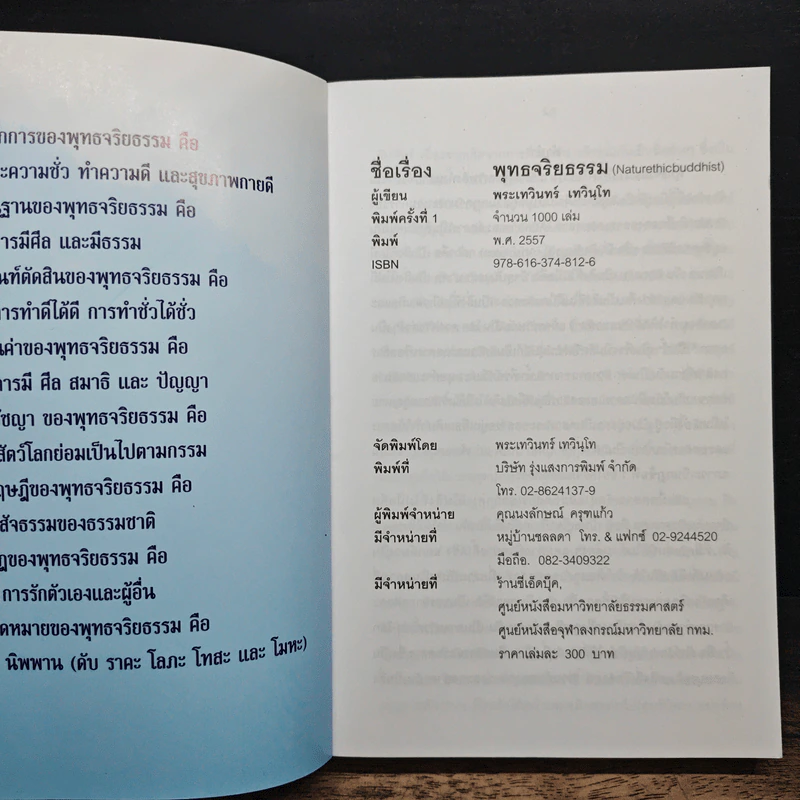 กการของพุทธจริยธรรม คือ
ะความชั่ว ทำความดี และสุขภาพกายดี
นฐานของพุทธจริยธรรม คือ
ารมีศีล และมีธรรม
ณฑ์ตัดสินของพุทธจริยธรรม คือ
การทำดีได้ดี การทำชั่วได้ชั่ว
นค่าของพุทธจริยธรรม คือ
การมี ศีล สมาธิ และ ปัญญา
ัชญา ของพุทธจริยธรรม คือ
สัตว์โลกย่อมเป็นไปตามกรรม
ฤษฎีของพุทธจริยธรรม คือ
สัจธรรมของธรรมชาติ
ฎของพุทธจริยธรรม คือ
การรักตัวเองและผู้อื่น
ดหมายของพุทธจริยธรรม คือ
นิพพาน (ดับ ราคะ โลภะ โทสะ และ โมหะ)
ชื่อเรื่อง พุทธจริยธรรม (Naturethicbuddhist)
ผู้เขียน พระเทวินทร์ เทวินฺโท
พิมพ์ครั้งที่ 1 จำนวน 1000 เล่ม
พิมพ์ พ.ศ. 2557
ISBN 978-616-374-812-6
จัดพิมพ์โดย พระเทวินทร์ เทวินฺโท
พิมพ์ที่ บริษัท รุ่งแสงการพิมพ์ จำกัด
โทร. 02-8624137-9
ผู้พิมพ์จำหน่าย คุณนงลักษณ์ ครุฑแก้ว
มีจำหน่ายที่ หมู่บ้านชลลดา โทร. & แฟกซ์ 02-9244520
มือถือ. 082-3409322
มีจำหน่ายที่ ร้านซีเอ็ดบุ๊ค,
ศูนย์หนังสือมหาวิทยาลัยธรรมศาสตร์
ศูนย์หนังสือจุฬาลงกรณ์มหาวิทยาลัย กทม.
ราคาเล่มละ 300 บาท